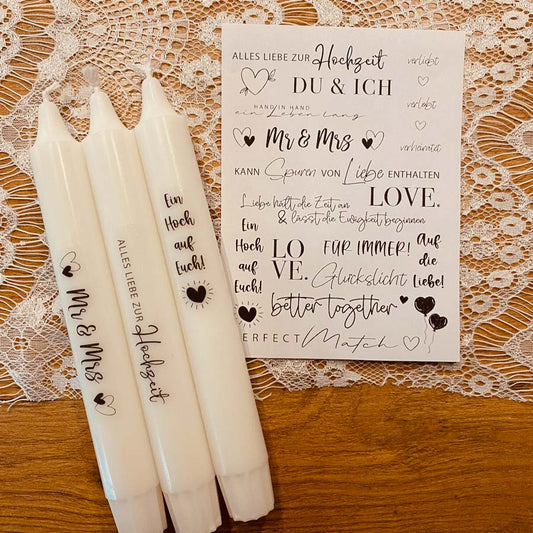 Mr & Mrs
ALLES LIEBE ZUR Hochzeit
Ein
Hoch
auf
Euch!
ALLES LIEBE ZUR Hochzeit
verliebt
DU & ICH
HAND IN HAND
ein Leben lang
verlobt
Mr & Mrs
verheiratet
KANN Spuren VON Liebe ENTHALTEN
Liebe hält die Zeit an
LOVE.
& lässt die Ewigkeit beginnen
Ein
Hoch
auf
Euch!
LO
VE.
FÜR IMMER!
Auf
die
Liebe!
Glückslicht
better together
PERFECT Match